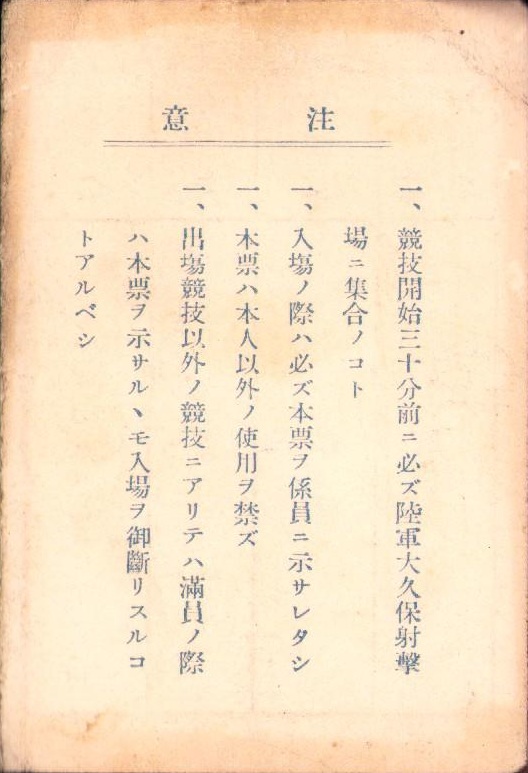 注意
一、競技開始三十分前ニ必ズ陸軍大久保射擊
場ニ集合ノコト
一、入塲ノ際ハ必ズ本票ヲ係員ニ示サレタシ
一、本票ハ本人以外ノ使用ヲ禁ズ
一、出塲競技以外ノ競技ニアリテハ滿員ノ際
ハ本票ヲ示サルヽモ入場ヲ御斷リスルコ
トアルベシ